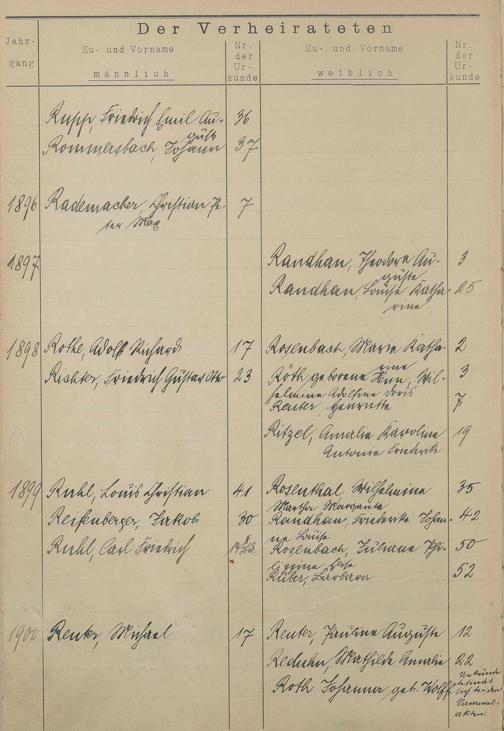 Der Verheirateten
Jahr-
gang
Zu- und Vorname
männlich
Nr.
der
Ur-
kunde
Zu- und Vorname
weiblich
Nr.
der
Ur-
kunde
Rupp, Friedrich Emil Au-
gust 36
Rommersbach, Johann 37
1896 Rademacher, Christian Pe- 7
ter Max
1897 Randhan, Theodore Au- 3
guste
Randhan, Louise Katha- 25
rine
1898 Rothe, Adolf Richard 17 Rosenbach, Marie Katha- 2
rine
Richter, Friedrich Gustav Otto 23 Röth geborene Wil- 3
helmine Adolfine Doris
Renker, Henriette 7
Ritzel, Amalie Karoline 19
Antonie Friederike
1899 Ruhl, Louis Christian 41 Rosenthal, Wilhelmine 35
Martha Margareta
Reifenberger, Jakob 30 Randhan, Friederike Johan- 42
ne Louise
Ruhl, Carl Friedrich Rosenbach, Juliane Phi- 50
lippine Elise
Rüber, Barbara 52
1900 Renker, Michael 17 Renker, Pauline Auguste 12
Reduhn, Mathilde Amalie 22
Roth Johanna geb. Wolff Urkunde
befindet
sich bei den
Sammel-
akten.